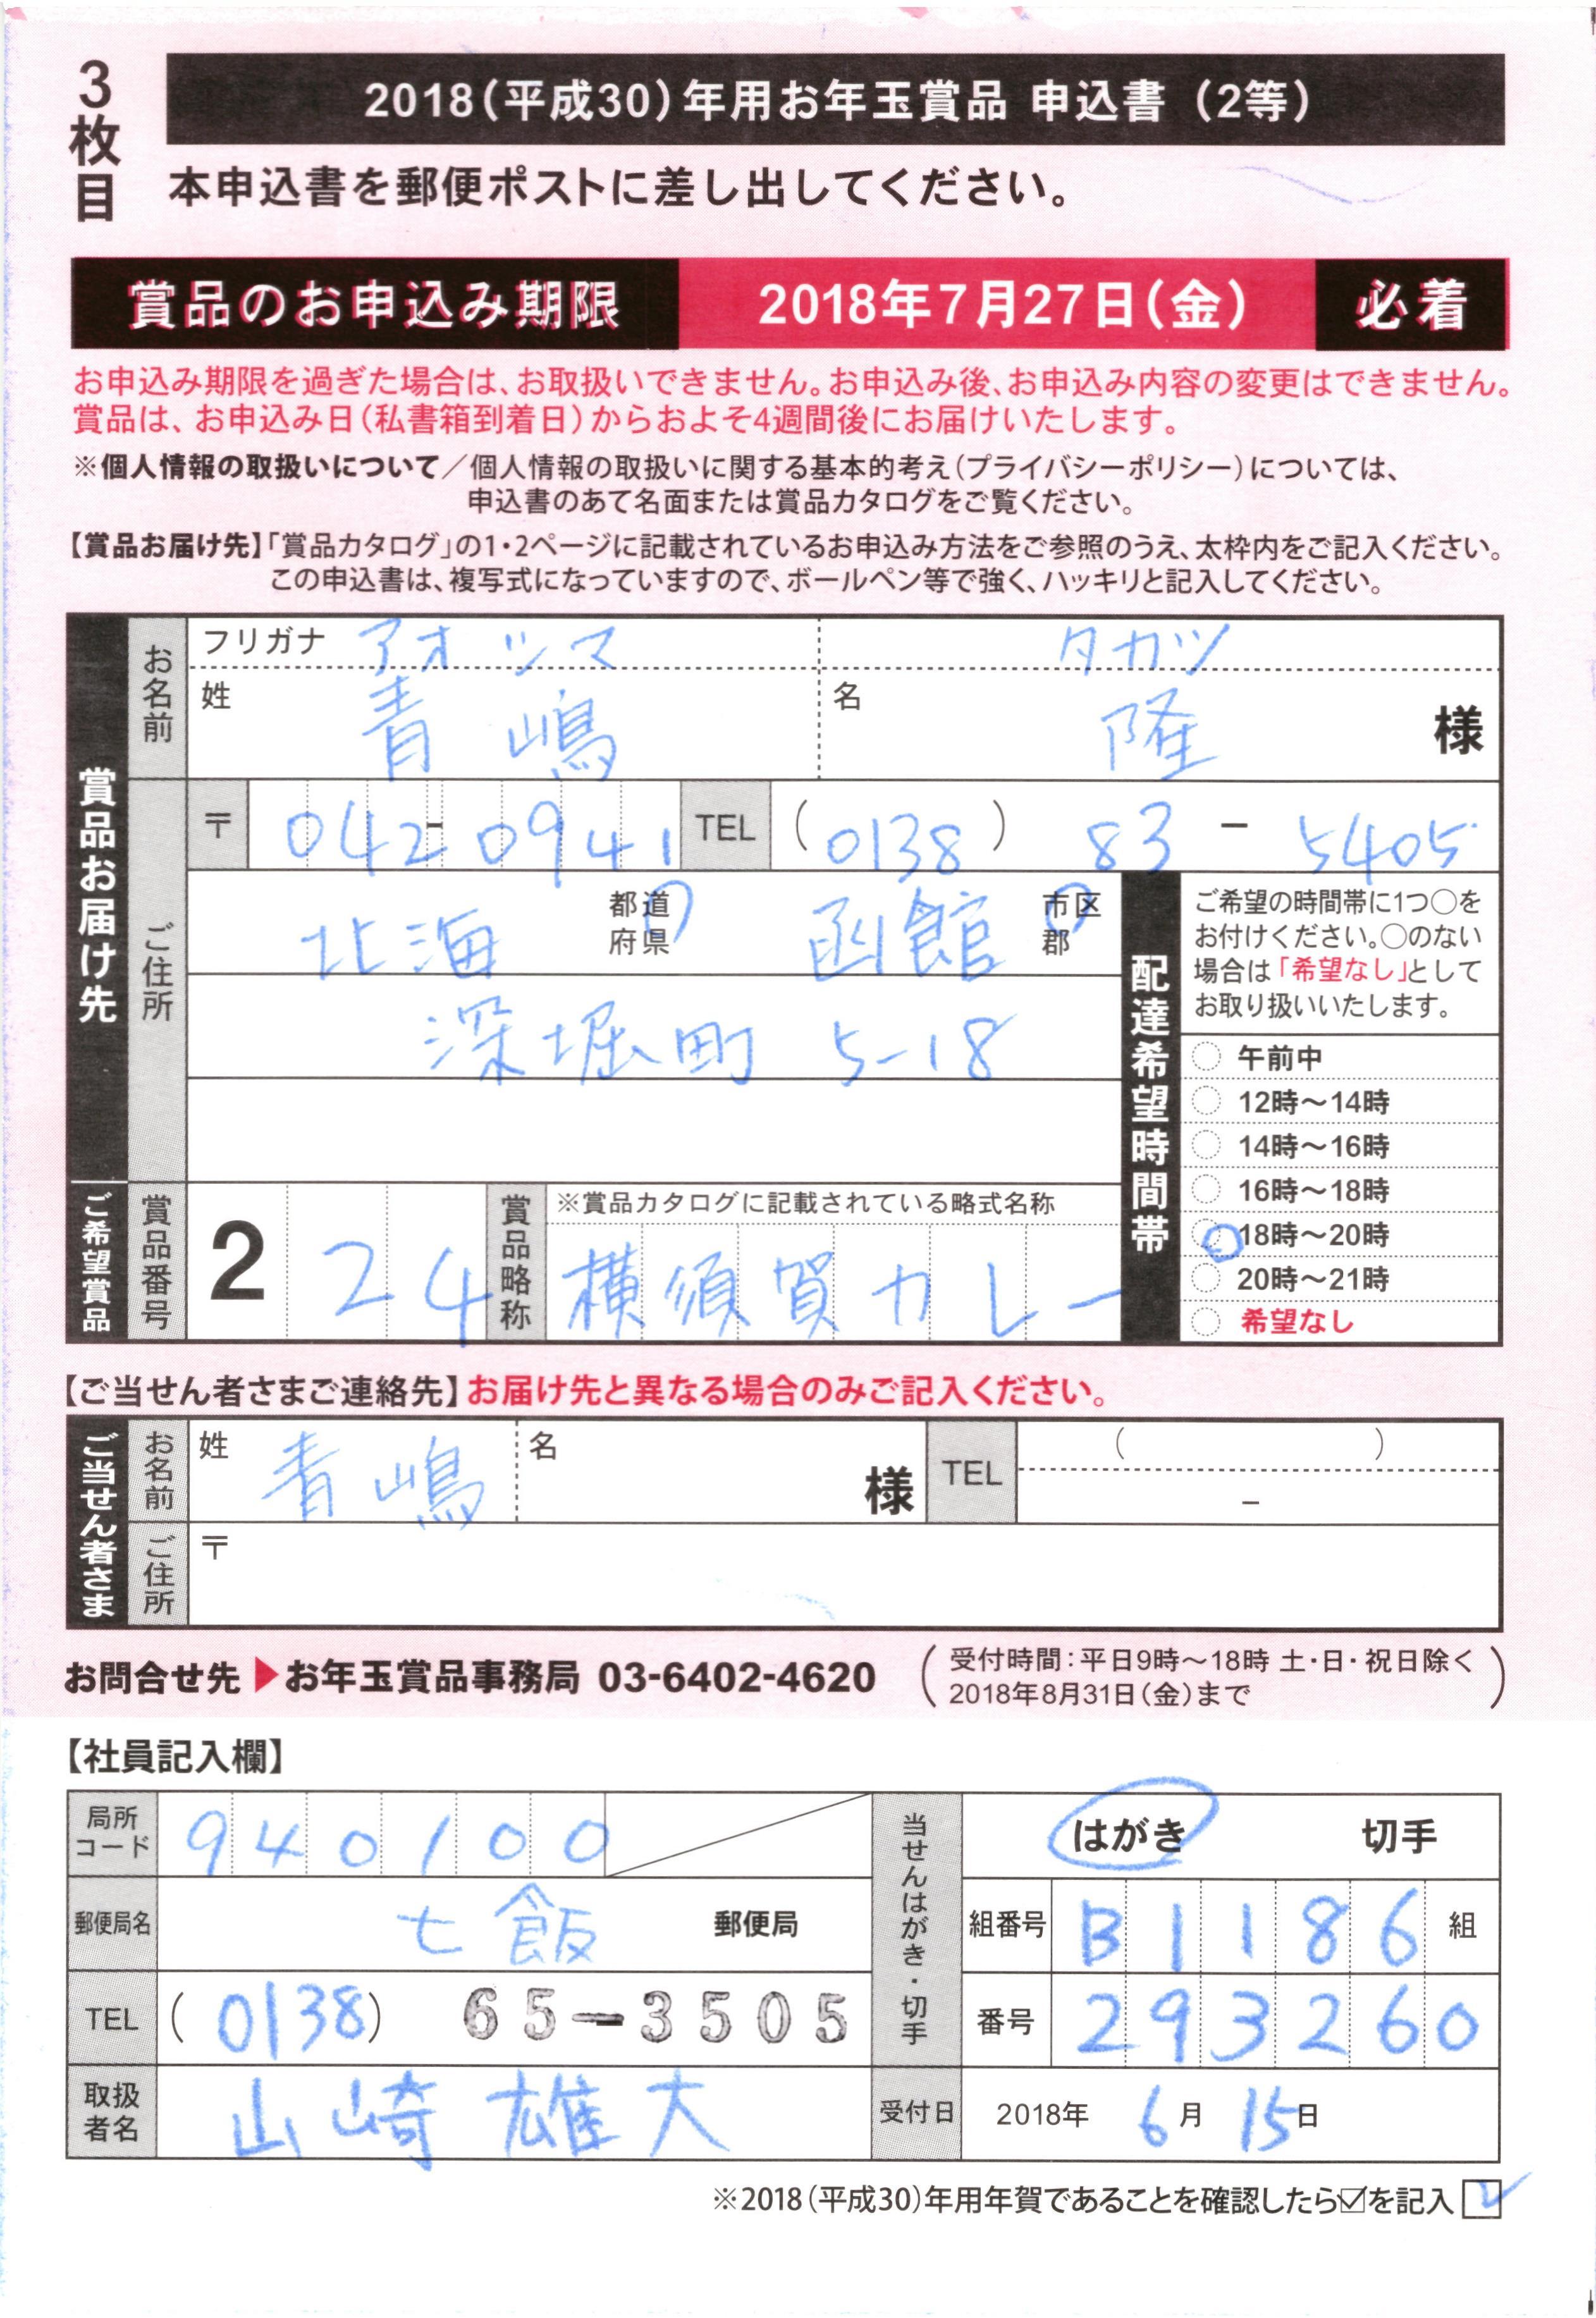 3枚目
2018（平成30）年用お年玉賞品 申込書（2等）
本申込書を郵便ポストに差し出してください。
賞品のお申込み期限 2018年7月27日（金） 必着
お申込み期限を過ぎた場合は、お取扱いできません。お申込み後、お申込み内容の変更はできません。
賞品は、お申込み日（私書箱到着日）からおよそ4週間後にお届けいたします。
※個人情報の取扱いについて／個人情報の取扱いに関する基本的考え（プライバシーポリシー）については、
申込書のあて名面または賞品カタログをご覧ください。
【賞品お届け先】「賞品カタログ」の1・2ページに記載されているお申込み方法をご参照のうえ、太枠内をご記入ください。
この申込書は、複写式になっていますので、ボールペン等で強く、ハッキリと記入してください。
賞品お届け先
お名前
フリガナ アオシマ タカシ
姓 青嶋 名 隆 様
ご住所
〒 042-0941 TEL (0138) 83 - 5405
北海 都道府県 函館 市区郡
深堀町 5-18
配達希望時間帯
ご希望の時間帯に1つ○を
お付けください。○のない
場合は「希望なし」として
お取り扱いいたします。
午前中
12時～14時
14時～16時
16時～18時
18時～20時
20時～21時
希望なし
ご希望賞品
賞品番号 2 2 4
賞品略称
※賞品カタログに記載されている略式名称
横須賀カレー
【ご当せん者さまご連絡先】お届け先と異なる場合のみご記入ください。
ご当せん者さま
お名前 姓 青嶋 名 様 TEL ( ) -
ご住所 〒
お問合せ先 ▶ お年玉賞品事務局 03-6402-4620
（受付時間：平日9時～18時 土・日・祝日除く
2018年8月31日（金）まで）
【社員記入欄】
局所コード 940100
郵便局名 七飯 郵便局
TEL (0138) 65-3505
取扱者名 山崎 雄大
当せんはがき・切手
はがき 切手
組番号 B1186 組
番号 293260
受付日 2018年 6月 15日
※2018（平成30）年用年賀であることを確認したら☑を記入 ✓